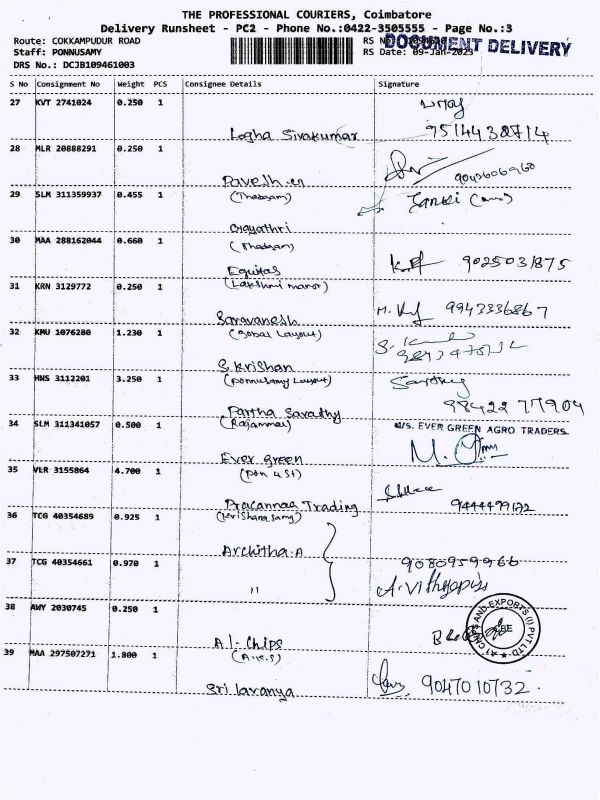 THE PROFESSIONAL COURIERS, Coimbatore
Delivery Runsheet - PC2 - Phone No.:0422-3505555 - Page No.:3
Route: COKKAMPUDUR ROAD
RS No
DOCUMENT DELIVERY
Staff: PONNUSAMY
RS Date: 09-Jan-2023
DRS No.: DCJB109461003
S No Consignment No Weight PCS Consignee Details Signature
27 KVT 2741024 0.250 1
Logha Sivakumar
28 MLR 20888291 0.250 1
Pavesh.m 9043606960
29 SLM 311359937 0.455 1
(Thadagam)
Gayathri
30 MAA 288162044 0.660 1
(Thadagam)
Equitas 9025031875
31 KRN 3129772 0.250 1
(Lakshmi manor)
Saravanesh 9943336867
32 KMU 1076280 1.230 1
(Global Layout)
S.Krishan
33 HNS 3112201 3.250 1
(Ponnusamy Layout)
98422 77904
Partha Sarathy
34 SLM 311341057 0.500 1
(Rajammal)
M/S. EVER GREEN AGRO TRADERS
Ever green
35 VLR 3155864 4.700 1
Pracannaa Trading 9444499172
36 TCG 40354689 0.925 1
(Krishnasamy)
Architha.A
37 TCG 40354661 0.970 1
9080959966
"
38 AWY 2030745 0.250 1
A1-Chips
39 MAA 297507271 1.800 1
Sri lavanya 9047010732